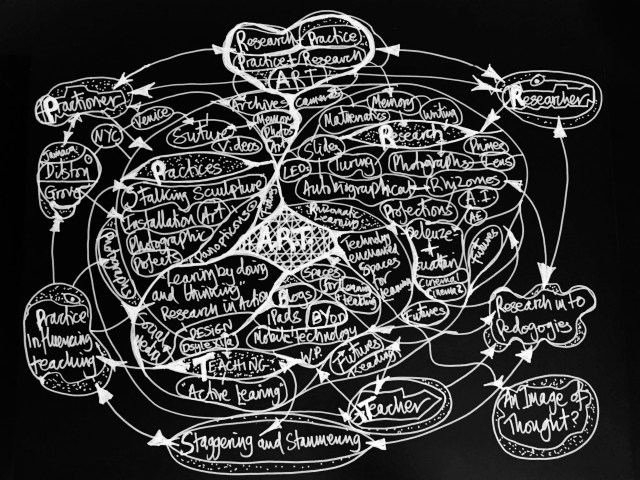 Research + Practice
Practice + Research
ART
Practioner
Researcher
Archives
Cameras
Memory
Mathematics
Writing
Venice
NYC
Suture
Videos
Memory
Photos
Art
Slides
Research
Primes
Dilston
Grove
Practices
LEDs
Turing
Photographs
Lens
Talking Sculpture
Autobiographical
Rhizomes
Installation Art
Projections
A.I
Photographic
Projects
Panopticons
ART
Rhizomatic
Learning
Deleuze
+
Guattari
Futures
Technology
enhanced
Spaces
for
Learning
Cinema 1
Cinema 2
Learning by doing
and thinking"
Research in Action
Spaces
for
Learning
Teaching
Blogs
iPads
BYOD
Futures
Social
Media
DESIGN
Dyslexia
Mobile Technology
Practice
Influencing
teaching
Research into
Pedagogies
TEACHING
W.P.
Futures
Reading
"Active learing"
Teacher
An Image of
Thought?
Staggering and Stammering